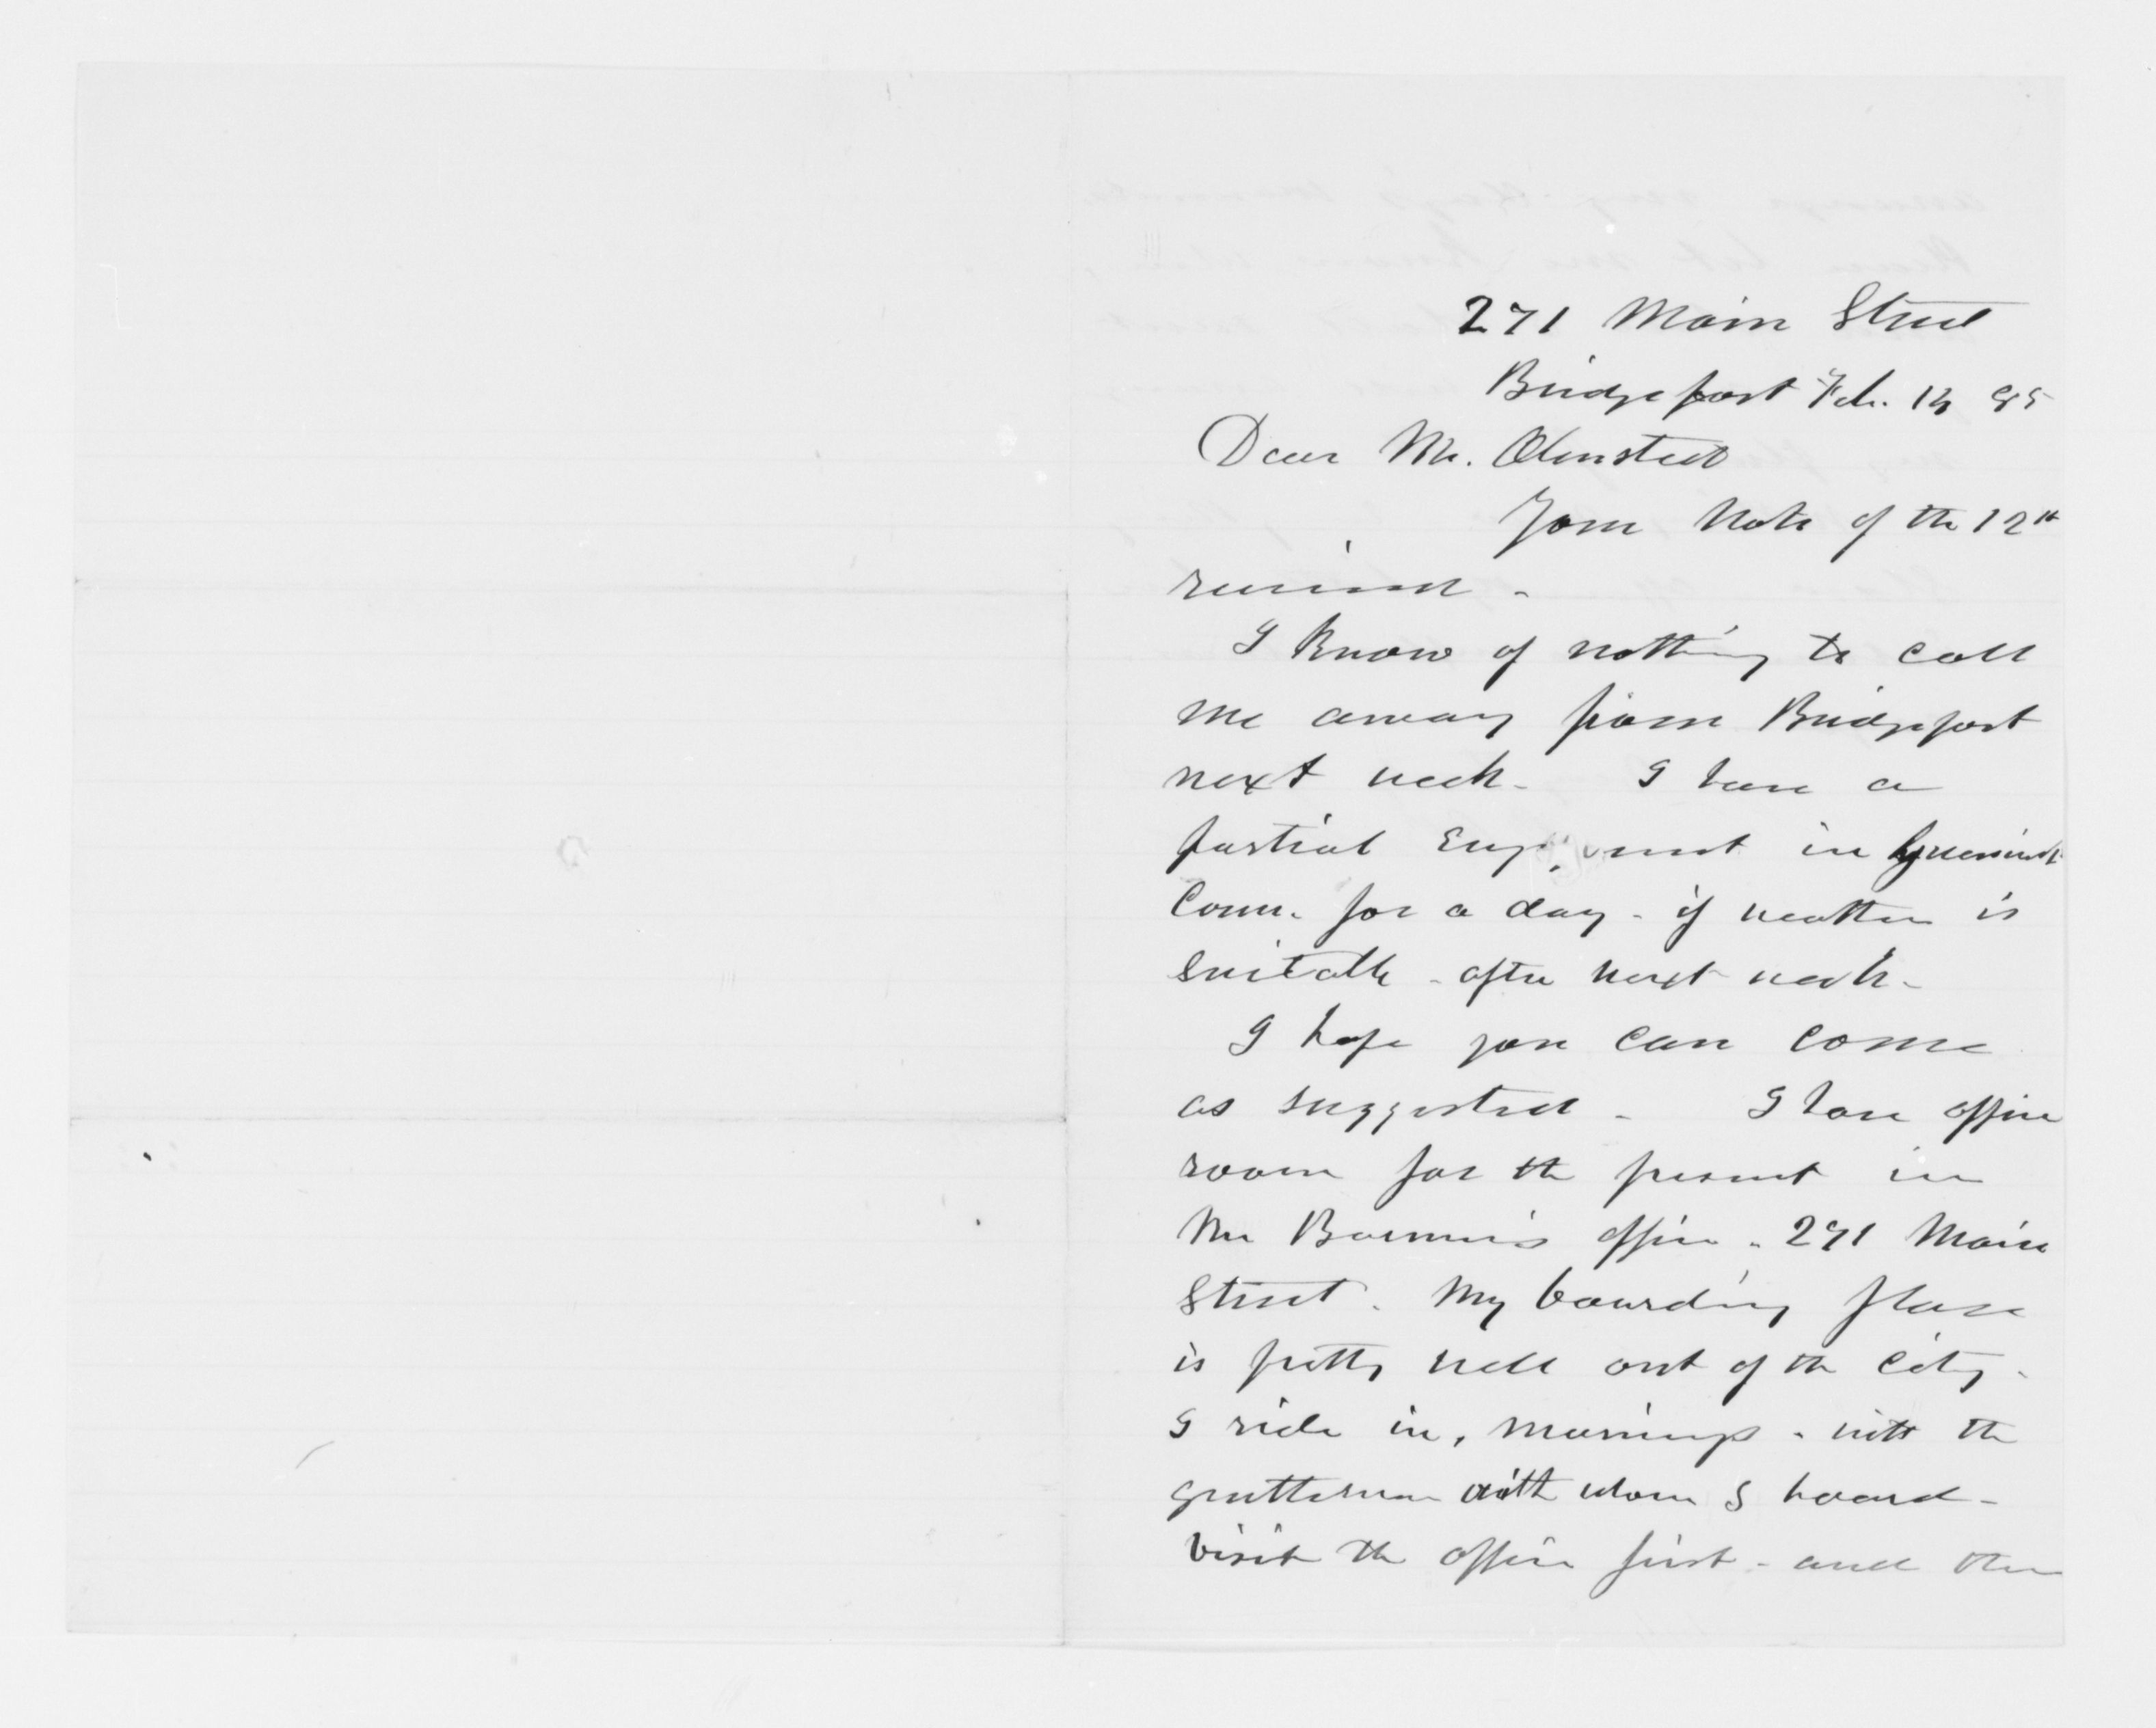 271 Main Street
Bridgeport Feb. 13 85
Dear Mr. Olmsted
Your note of the 12th
received -
I know of nothing to call
me away from Bridgeport
next week - I have a
partial engagement in Greenwich
Conn. for a day - if weather is
suitable - after next week -
I hope you can come
as suggested - I have office
room for the present in
Mr Barnum's office - 271 Main
Street. My boarding place
is pretty well out of the city -
I ride in, mornings - with the
gentleman with whom I board -
visit the office first - and then